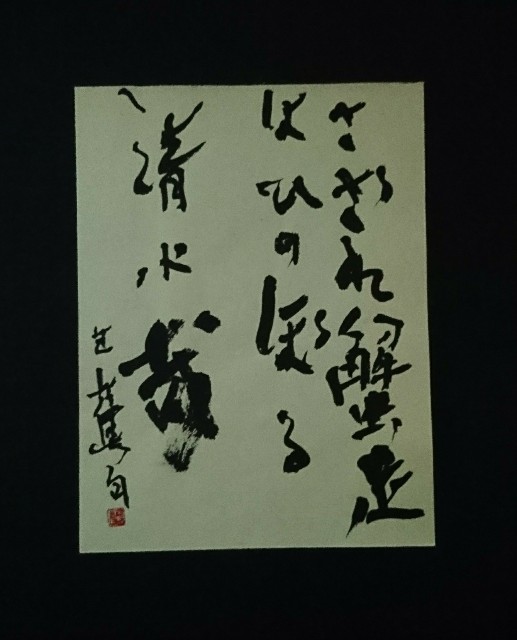 さざれ蟹足
はひのぼる
清水哉
芭蕉句